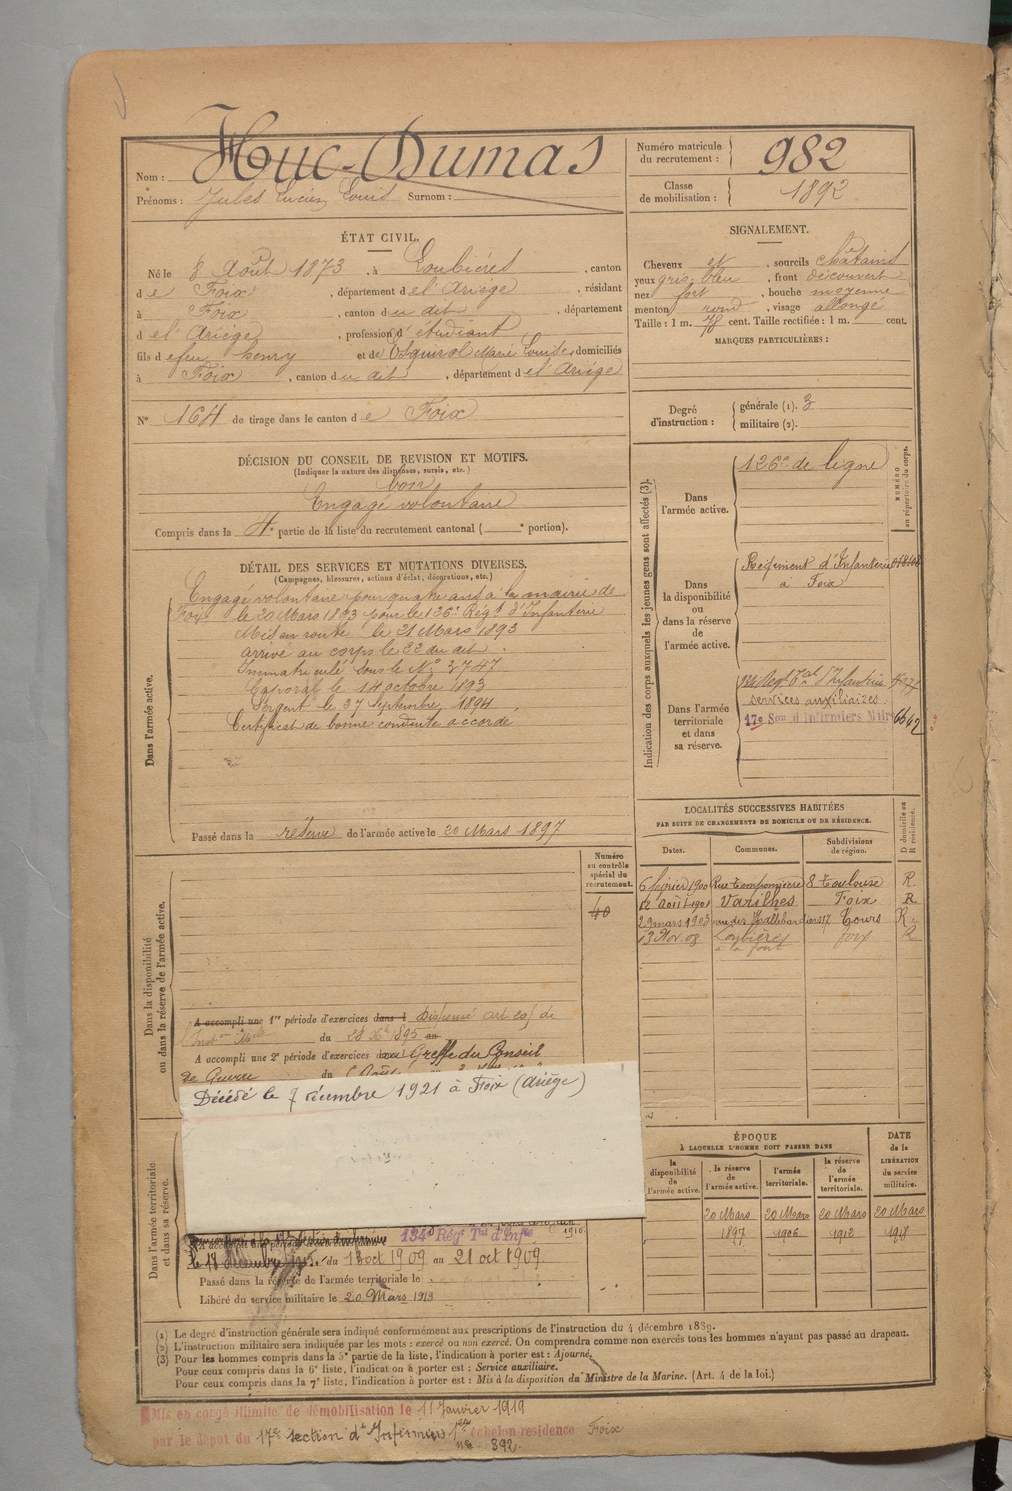 Nom : Huc-Dumas
Prénoms : Jules Lucien Louis Surnom :
Numéro matricule du recrutement : 982
Classe de mobilisation : 1892
ÉTAT CIVIL.
Né le 8 Août 1873, à Loubières, canton
de Foix, département de l'Ariège, résidant
à Foix, canton du dit, département
de l'Ariège, profession d'étudiant
fils de feu henry et de Esquirol Marie Louise domiciliés
à Foix, canton du dit, département de l'Ariège
N° 164 de tirage dans le canton de Foix
SIGNALEMENT.
Cheveux et, sourcils châtains
yeux gris bleu, front découvert
nez fort, bouche moyenne
menton rond, visage allongé
Taille : 1 m. 78 cent. Taille rectifiée : 1 m. cent.
MARQUES PARTICULIÈRES :
Degré d'instruction : générale (1). 3
militaire (2).
DÉCISION DU CONSEIL DE REVISION ET MOTIFS.
(Indiquer la nature des dispenses, sursis, etc.)
bon
Engagé volontaire
Compris dans la 4e partie de la liste du recrutement cantonal ( e portion).
DÉTAIL DES SERVICES ET MUTATIONS DIVERSES.
(Campagnes, blessures, actions d'éclat, décorations, etc.)
Dans l'armée active.
Engagé volontaire pour quatre ans à la mairie de
Foix le 20 Mars 1893 pour le 126e Régt d'Infanterie
Mis en route le 21 Mars 1893
arrivé au corps le 22 du dit.
Immatriculé sous le N° 3747
Caporal le 14 octobre 1893
Sergent le 27 Septembre 1894
Certificat de bonne conduite accordé
Passé dans la réserve de l'armée active le 20 Mars 1897
Indication des corps auxquels les jeunes gens sont affectés (3).
NUMÉRO au répertoire du corps.
Dans l'armée active.
126e de ligne
Dans la disponibilité ou dans la réserve de l'armée active.
Régiment d'Infanterie
à Foix
Dans l'armée territoriale et dans sa réserve.
services auxiliaires
17e Son d'Infirmiers Milres 6642
LOCALITÉS SUCCESSIVES HABITÉES
PAR SUITE DE CHANGEMENTS DE DOMICILE OU DE RÉSIDENCE.
Dates. Communes. Subdivisions de région. D domicile ou R résidence.
6 février 1900 Rue Tamponnière 8 Toulouse R
12 Août 1901 Varilhes Foix R
29 mars 1903 rue des Hallebardiers 17 Tours R
13 Nov. 08 Loubières foix R
Numéro au contrôle spécial du recrutement.
40
Dans la disponibilité ou dans la réserve de l'armée active.
A accompli une 1re période d'exercices dans l Dispensé art de
du 28 1895 au
A accompli une 2e période d'exercices Greffe du Conseil
de Guerre du
Décédé le 7 décembre 1921 à Foix (Ariège)
ÉPOQUE
À LAQUELLE L'HOMME DOIT PASSER DANS
la disponibilité de l'armée active. la réserve de l'armée active. l'armée territoriale. la réserve de l'armée territoriale.
DATE de la LIBÉRATION du service militaire.
20 Mars 1897 20 Mars 1906 20 Mars 1912 20 Mars 1918
Dans l'armée territoriale et dans sa réserve.
134e Régt Tal d'Infie
du 13 oct 1909 au 21 oct 1909
Passé dans la réserve de l'armée territoriale le
Libéré du service militaire le 20 Mars 1919
(1) Le degré d'instruction générale sera indiqué conformément aux prescriptions de l'instruction du 4 décembre 1889.
(2) L'instruction militaire sera indiquée par les mots : exercé ou non exercé. On comprendra comme non exercés tous les hommes n'ayant pas passé au drapeau.
(3) Pour les hommes compris dans la 5e partie de la liste, l'indication à porter est : Ajourné.
Pour ceux compris dans la 6e liste, l'indication à porter est : Service auxiliaire.
Pour ceux compris dans la 7e liste, l'indication à porter est : Mis à la disposition du Ministre de la Marine. (Art. 4 de la loi.)
Mis en congé illimité de démobilisation le 11 Janvier 1919
par le dépot du 17e section d'Infirmiers 1er échelon résidence Foix
n° 892.